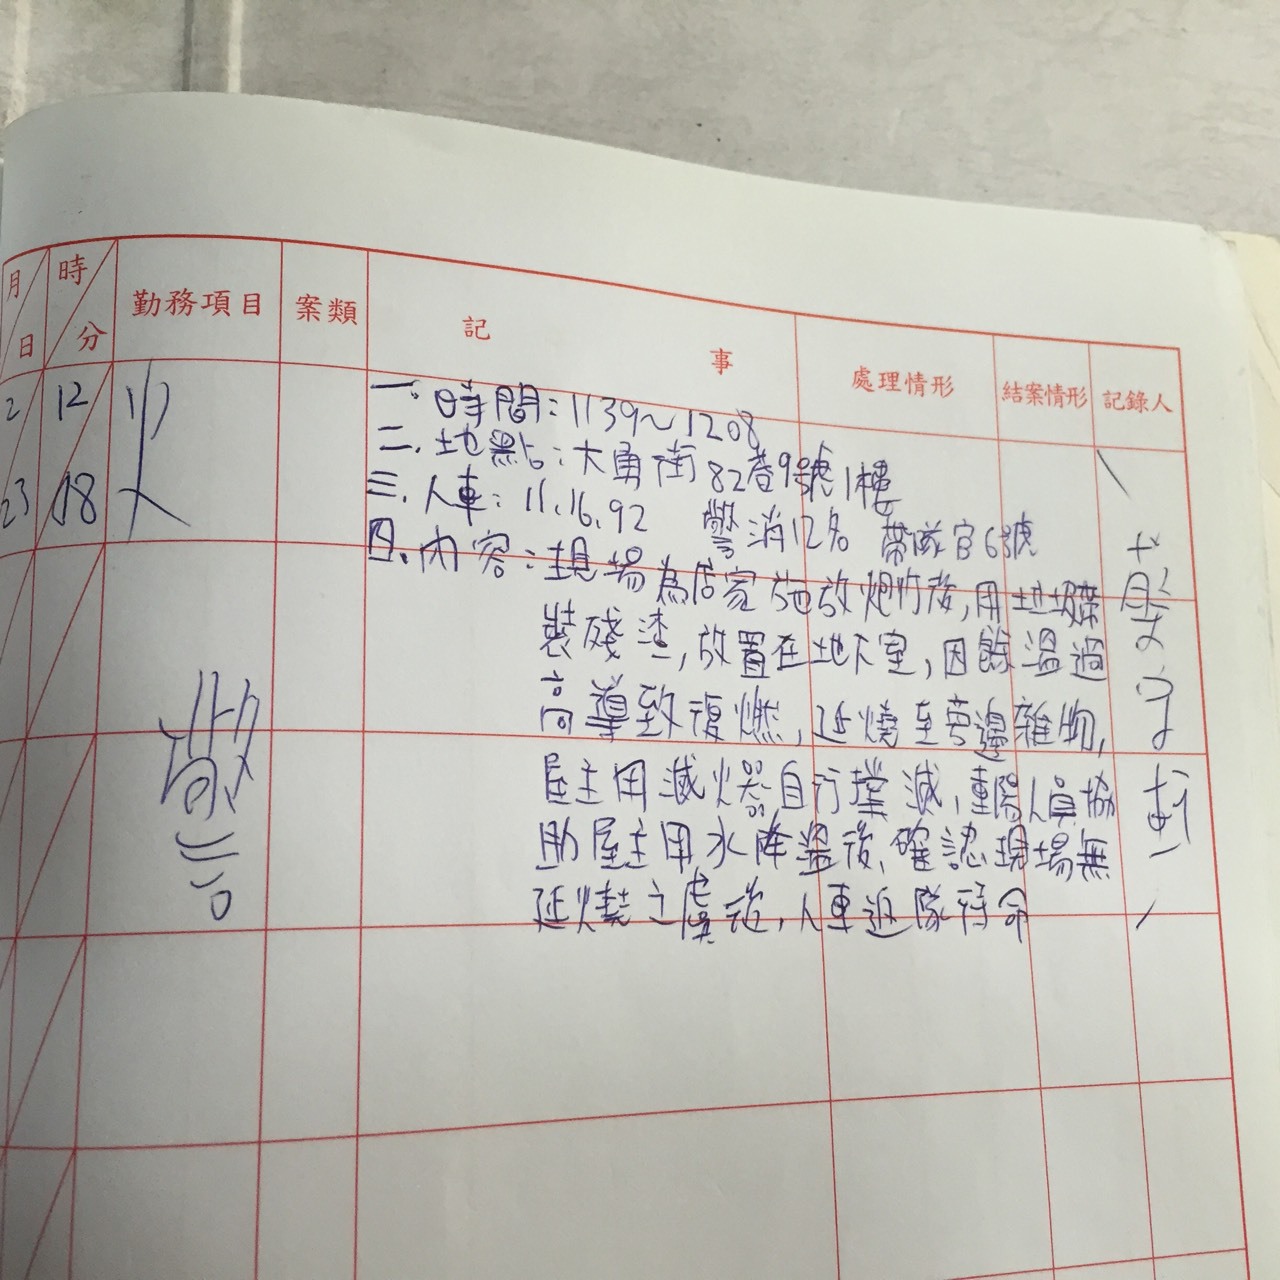 月 日 時 分 勤務項目 案類 記 事 處理情形 結案情形 記錄人
2 23 12 18 火警
一、時間：1139～1208
二、地點：大勇街82巷9號1樓
三、人車：11.16.92 警消12名 帶隊官6號
四、內容：現場為店家施放炮竹後，用垃圾帶
裝殘渣，放置在地下室，因餘溫過
高導致復燃，延燒至旁邊雜物，
屋主用滅火器自行撲滅，車陽人員協
助屋主用水降溫後，確認現場無
延燒之虞後，人車返隊待命